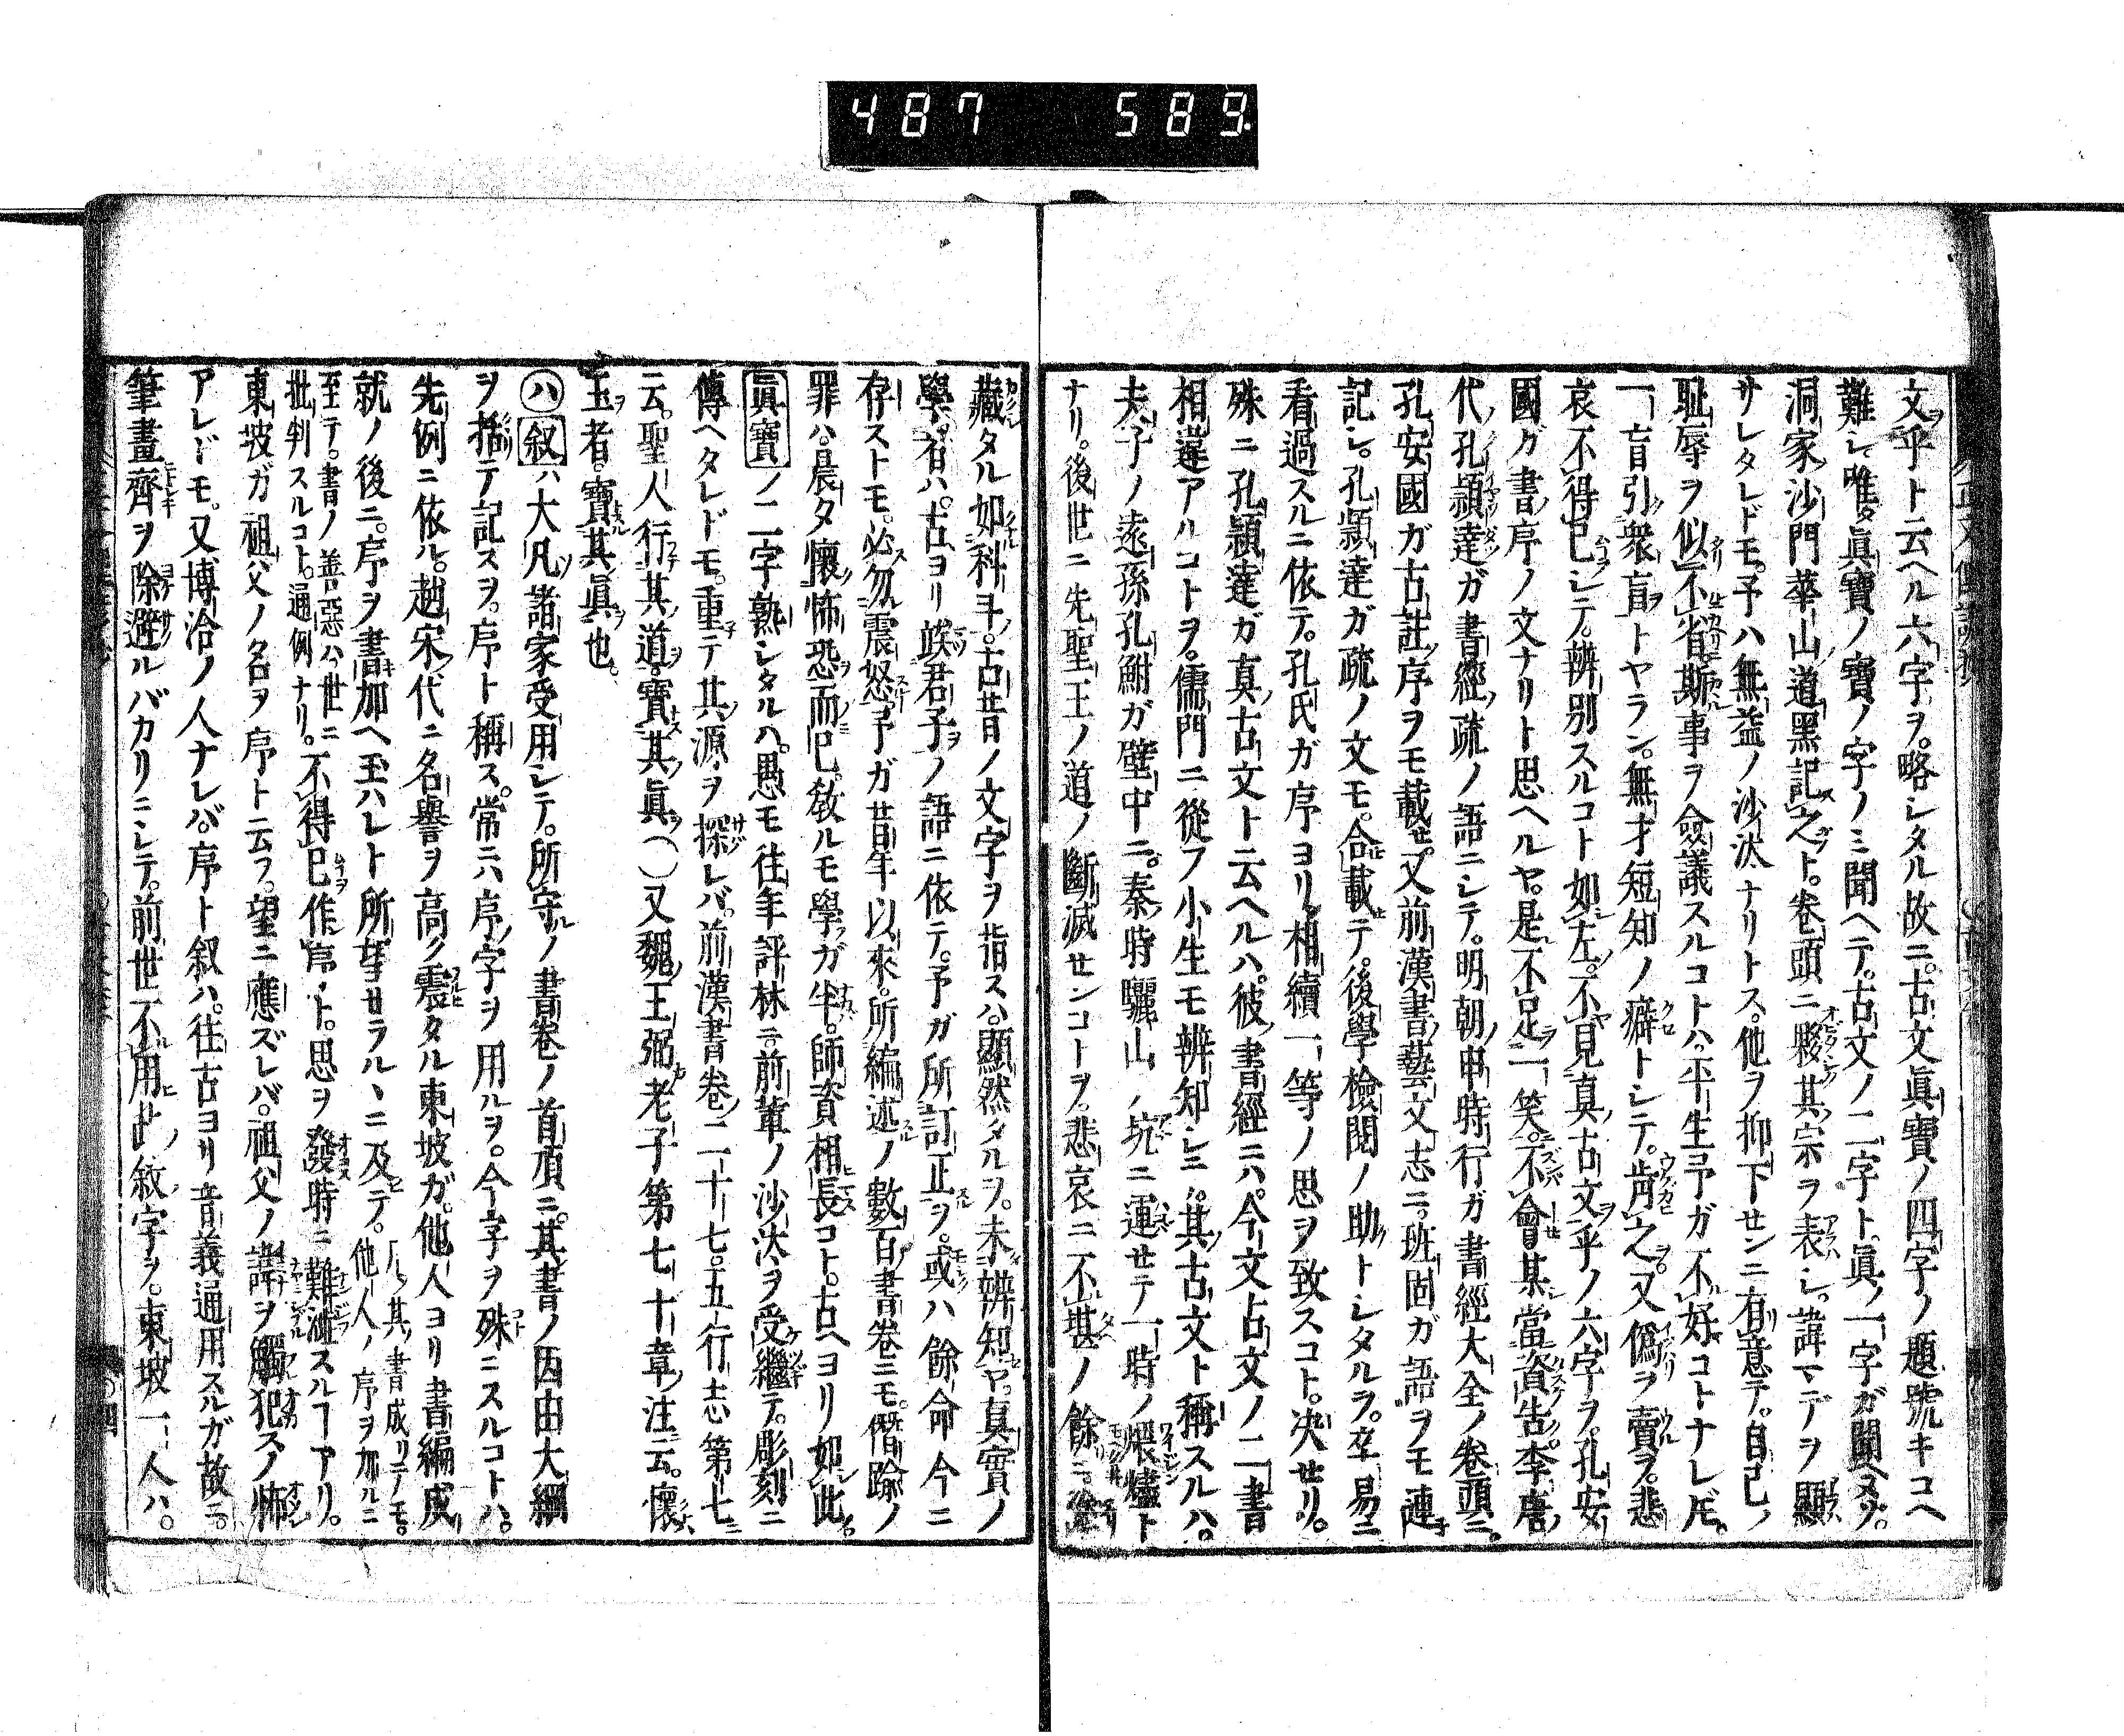 487 589
文乎ト云ヘル六字ヲ。略シタル故ニ。古文眞寶ノ四字ノ題號キコヘ
難シ。唯眞寶ノ寶ノ字ノミ聞ヘテ。古文ノ二字ト。眞ノ一字ガ聞ヘヌゾ。
洞家沙門華山道黑記之ト。卷頭ニ夥其宗ヲ表シ。諱マデヲ顯
サレタレドモ。予ハ無益ノ沙汰ナリトス。他ヲ抑下センニ有意テ。自己ノ
耻辱ヲ似不省斯事ヲ僉議スルコトハ。平生予ガ不好コトナレドモ。
一盲引衆盲トヤラン。無才短知ノ癖トシテ。肯之又僞ヲ賣ヲ。悲
哀不得已シテ。辨別スルコト如左。不見真古文乎ノ六字ヲ。孔安
國ガ書序ノ文ナリト思ヘルヤ。是不足一笑。不會某當資告李唐
代孔頴達ガ書經疏ノ語ニシテ。明朝申時行ガ書經大全ノ卷頭ニ。
孔安國ガ古註序ヲモ載セ。又前漢書藝文志ニ。班固ガ語ヲモ連
記シ。孔頴達ガ疏ノ文モ。合載テ。後學檢閱ノ助トシタルヲ。卒易ニ
看過スルニ依テ。孔氏ガ序ヨリ。相續一等ノ思ヲ致スコト。决セリ。
殊ニ孔頴達ガ真古文ト云ヘルハ。彼書經ニハ。今文古文ノ二書
相違アルコトヲ。儒門ニ從フ小生モ辨知シ。其古文ト稱スルハ。
夫子ノ遠孫孔鮒ガ壁中ニ。秦時驪山ノ坑ニ運セテ一時ノ煨燼ト
ナリ。後世ニ先聖王ノ道ノ斷滅センコトヲ。悲哀ニ不堪ノ餘ニ。塗
藏タル如科斗。古昔ノ文字ヲ指スハ。顯然タルヲ。未辨知ヤ。真實ノ
學者ハ。古ヨリ竢君子ノ語ニ依テ。予ガ所訂正ヲ。或ハ餘命今ニ
存ストモ。必勿震怒予ガ昔年以來。所編述ノ數百書卷ニモ。僭踰ノ
罪ハ。晨夕懷怖恐而已。敎ルモ學ガ半。師資相長コト。古ヘヨリ如此。
眞寶ノ二字熟シタルハ。愚モ往年評林ニ。前輩ノ沙汰ヲ受繼テ。彫刻ニ
傳ヘタレドモ。重テ其源ヲ探レバ。前漢書卷二十七。五行志第七
云。聖人行其道。寶其眞(ヽ)又魏王弼老子第七十章注云。懷
玉者。寶其眞也。
ハ叙ハ大凡諸家受用シテ。所守ノ書卷ノ首頂ニ。其書ノ因由大綱
ヲ括テ記スヲ。序ト稱ス。常ニハ序字ヲ用ルヲ。今字ヲ殊ニスルコトハ。
先例ニ依ル。趙宋代ニ名譽ヲ高ク震タル東坡ガ。他人ヨリ書編成
就ノ後ニ。序ヲ書加ヘ玉ハレト所望サラルヽニ及テ。其書成リテモ。他人ノ序ヲ加ルニ
至テ。書ノ善惡ハ。世ニ批判スルコト。通例ナリ。不得已作序ト。思ヲ發時ニ難澁スルヿアリ。
東坡ガ祖父ノ名ヲ序ト云フ。望ニ應ズレバ。祖父ノ諱ヲ觸犯スノ怖
アレドモ。又博洽ノ人ナレバ。序ト叙ハ。往古ヨリ音義通用スルガ故ニ。
筆畫齊ヲ除避ルバカリニシテ。前世不用此敘字ヲ。東坡一人ハ。
四